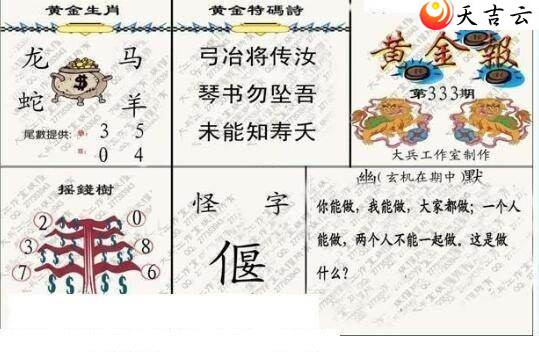 天吉云
黄金生肖
龙 马
蛇 羊
尾數提供: 3 5
0 4
黄金特碼詩
弓冶将传汝
琴书勿坠吾
未能知寿夭
黄金報
第333期
大兵工作室制作
摇錢樹
2 0
3 8
7 6
怪 字
偃
幽(玄机在期中)默
你能做，我能做，大家都做；一个人
能做，两个人不能一起做。这是做
什么？